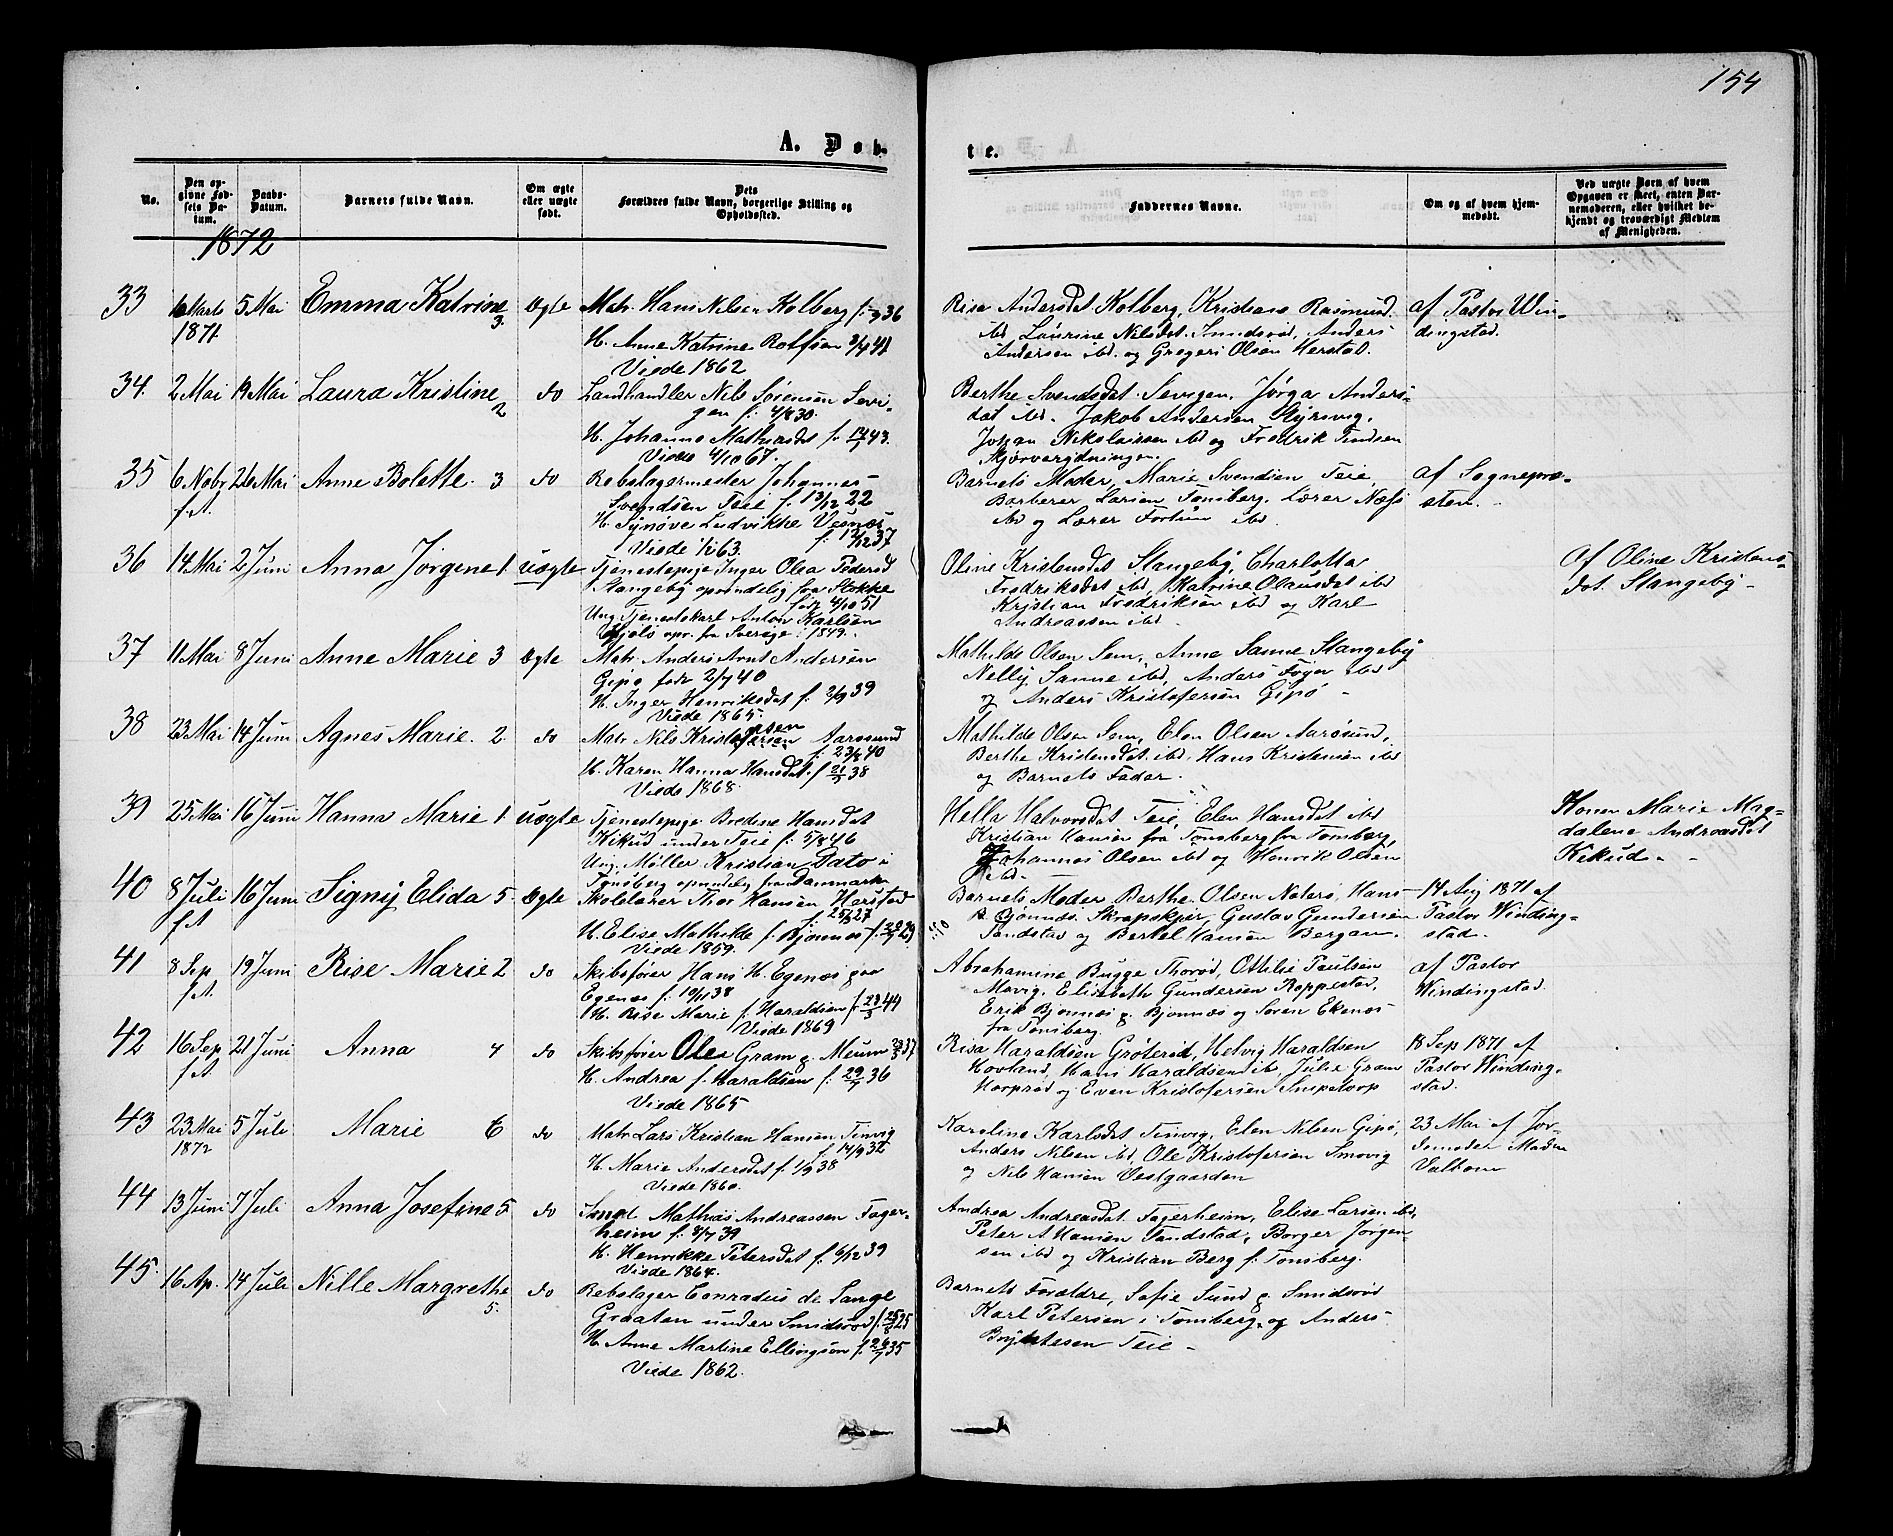 154
A. Døb-
te.
No.
Den op-
givne Fød-
sels Da-
tum.
Daabs-
Datum.
Barnets fulde Navn.
Om ægte
eller uægte
født.
Dets
Forældres fulde Navn, borgerlige Stilling og
Opholdssted.
Faddernes Navne.
Om og af hvem hjem-
medøbt.
Ved uægte Børn af hvem
Opgaven er skeet, enten Bar-
nemoderen, eller hvilket be-
kjendt og troværdigt Medlem
af Menigheden.
1872
33
Marts
1871
5 Mai
Emma Katrine
3.
Ægte
Matr. Hans Nilsen Kolberg f.
36
H. Anne Katrine
Viede 1862
Risa Andersdt Kolberg, Kristiane Rasmund.
ibd Laurine Nilsdat. Smidsrød, Anders
Andersen ibd. og Gregers Olsen Herstad.
af Pastor Win-
dingstad.
34.
2 Mai
Mai
Laura Kristine
2
do
Landhandler Nils Sørensen
f: 4/8 30.
H. Johanne f. 43.
Viede 4/10 67.
Berthe Svendsdat. Jørga Anders-
dat ibd. Jakob Andersen
Johan Nikolaissen ibd og Fredrik
35
6 Nobr
f.A.
26 Mai
Anne Bolette. 3
do
Rebslagermester Johannes
Svendsen Teie f. 13/12 22
H. Synøve Ludvikke
f. 13/12 37
Viede 1863.
Barnets Moder, Marie Svendsen Teie,
Barberer Larsen Tønsberg, Lærer Næss
ibd og Lærer ibd.
af Sognepræ-
sten.
36
14 Mai
2 Juni
Anna Jørgine 1
uægte
Tjenestepige Inger Olea Pedersd
Stangeby oprindelig fra Stokke
født 4/10 51
Ung. Tjenestekarl Anton Karlsen
opr. fra Sverige: 1849.
Oline Kristensdat Stangeby, Charlotta
Fredriksdat ibd, Katrine Olausdat ibd
Kristian Fredriksen ibd og Karl
Andreassen ibd.
Af Oline Kristens-
dat. Stangeby
37
11 Mai
8 Juni
Anne Marie 3
Ægte
Matr. Anders Arnt Andersen
Gipø født 2/7 40
H. Inger Henriksdat f. 2/9 39
Viede 1865.
Mathilde Olsen Sem, Anne Sanne Stangeby
Nelly Sanne ibd, Anders ibd
og Anders Kristofersen Gipø
38
23 Mai
14 Juni
Agnes Marie. 2
do
Matr Nils Aarøsund
f. 23/8 40
H. Karen Hanna Hansdat. f 38
Viede 1868.
Mathilde Olsen Sem, Elen Olsen Aarøsund,
Berthe Kristensdat ibd. Hans Kristensen ibd
og Barnets Fader.
39
25 Mai
16 Juni
Hanna Marie 1
uægte
Tjenestepige Bredine Hansdat
Kikud under Teie f. 5/8 46
Ung. Møller Kristian Dato i
Tønsberg oprindelig fra Danmark
Helle Halvorsdat Teie, Elen Hansdat ibd
Kristian Hansen fra Tønsberg
Johannes Olsen ibd og Henrik Olsen
ibd.
Konen Marie Mag-
dalene Andreasdat
Kikud.
40
8 Juli
f A
16 Juni
Signy Elida 5
Ægte
Skolelærer Thor Hansen Herstad
f. 25/7 27
H. Elise Mathilde f. Bjønnes f. 29
Viede 1859.
Barnets Moder Berthe Olsen Nøterø, Hans
Bjønnes. Skrapskjær, Gustav Gundersen
Sandstad og Bertel Hansen Bergan.
14 Aug 1871 af
Pastor Winding-
stad.
41
8 Sep
f.A.
19 Juni
Rise Marie 2
do
Skibsfører Hans H. Egenæs paa
Egenæs f. 10/11 38
H. Rise Marie f. Haraldsen f. 44
Viede 1869
Abrahamine Bugge Thorød, Ottilie Paulsen
Elisabeth Gundersen Roppestad,
Erik Bjønnes g. Bjønnes og Søren Ekenæs
fra Tønsberg.
af Pastor
Windingstad.
42
16 Sep
f.A.
21 Juni
Anna 4
do
Skibsfører Ole Gram g. Meum 37
H. Andrea f. Haraldsen f. 29/ 36
Viede 1865
Risa Haraldsen Grøterød, Helvig Haraldsen
Hovland, Hans Haraldsen ib, Julie Gram
og Even Kristofersen Snipetorp
18 Sep 1871 af
Pastor Winding-
stad.
43
23 Mai
1872
5 Juli
Marie 6
do
Matr Lars Kristian Hansen Tinvig
f 14/9 32
H. Marie Andersdat f. 1/9 38
Viede 1860.
Karoline Karlsdat Tinvig, Elen Nilsen Gipø,
Anders Nilsen ibd, Ole Kristofersen Smovig
og Nils Hansen Vestgaarden
23 Mai af Jor-
demoder Madm
Valhom
44
13 Juni
7 Juli
Anna Josefine 5
do
Smed Mathias Andreassen Fager-
heim f. 8/7 39
H. Henrikke Petersdat f. 6/12 39
Viede 1864.
Andrea Andreasdat. Fagerheim, Elise Larsen ibd,
Peter A Hansen Sandstad, Borger Jørgen-
sen ibd og Kristian Berg f. Tønsberg.
45.
16 Ap.
14 Juli
Nille Margrethe
5.
do
Rebslager Conradus de Lange
Graaten under Smidsrød f. 25
H. Anne Martine Ellingsen f. 35
Viede 1862.
Barnets Forældre, Sofie Lund g. Smidsrød
Karl Petersen i Tønsberg og Anders
Teie